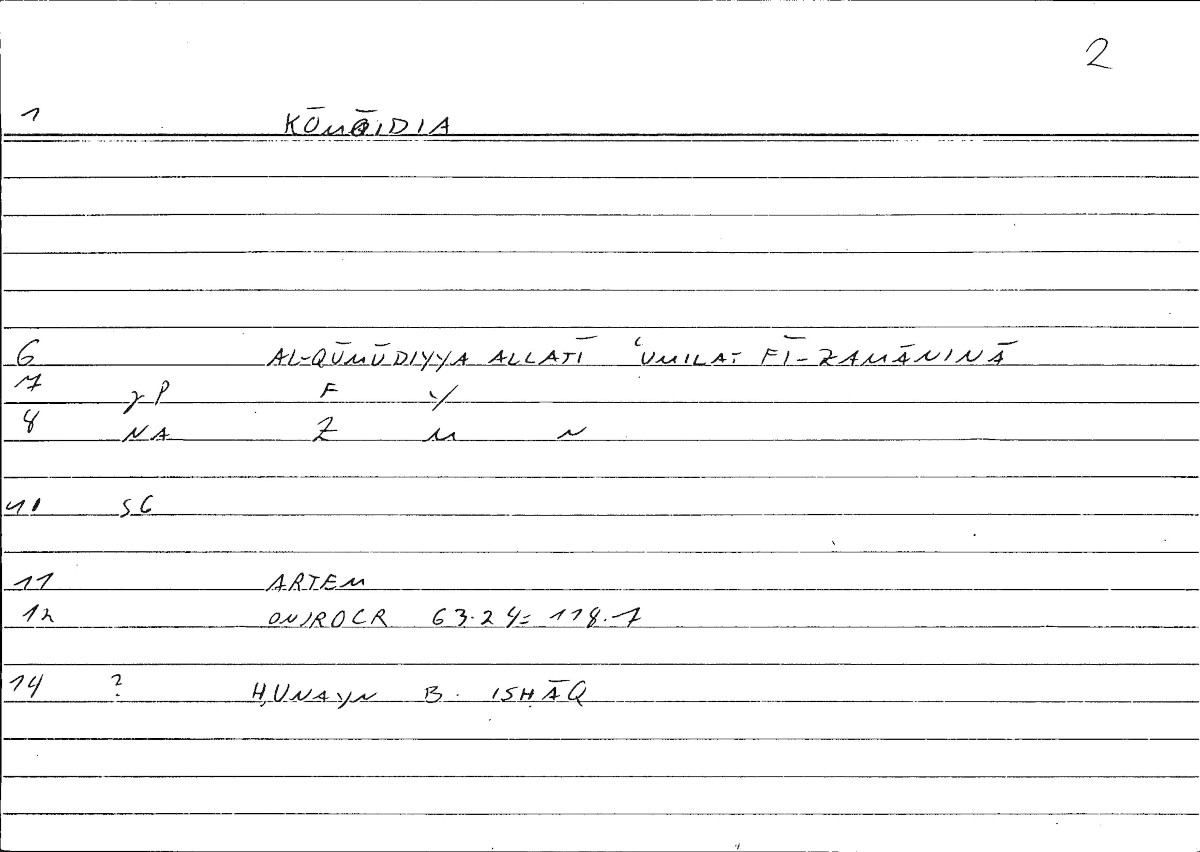 2
1 KŌMŌIDIA
6 AL-QŪMŪDIYYA ALLATĪ ʿUMILAT FĪ-ZAMĀNINĀ
7 γP F Y
8 NA Z M N
10 SG
11 ARTEM
12 ONIROCR 63.24= 118.7
14 ? ḤUNAYN B. ISḤĀQ